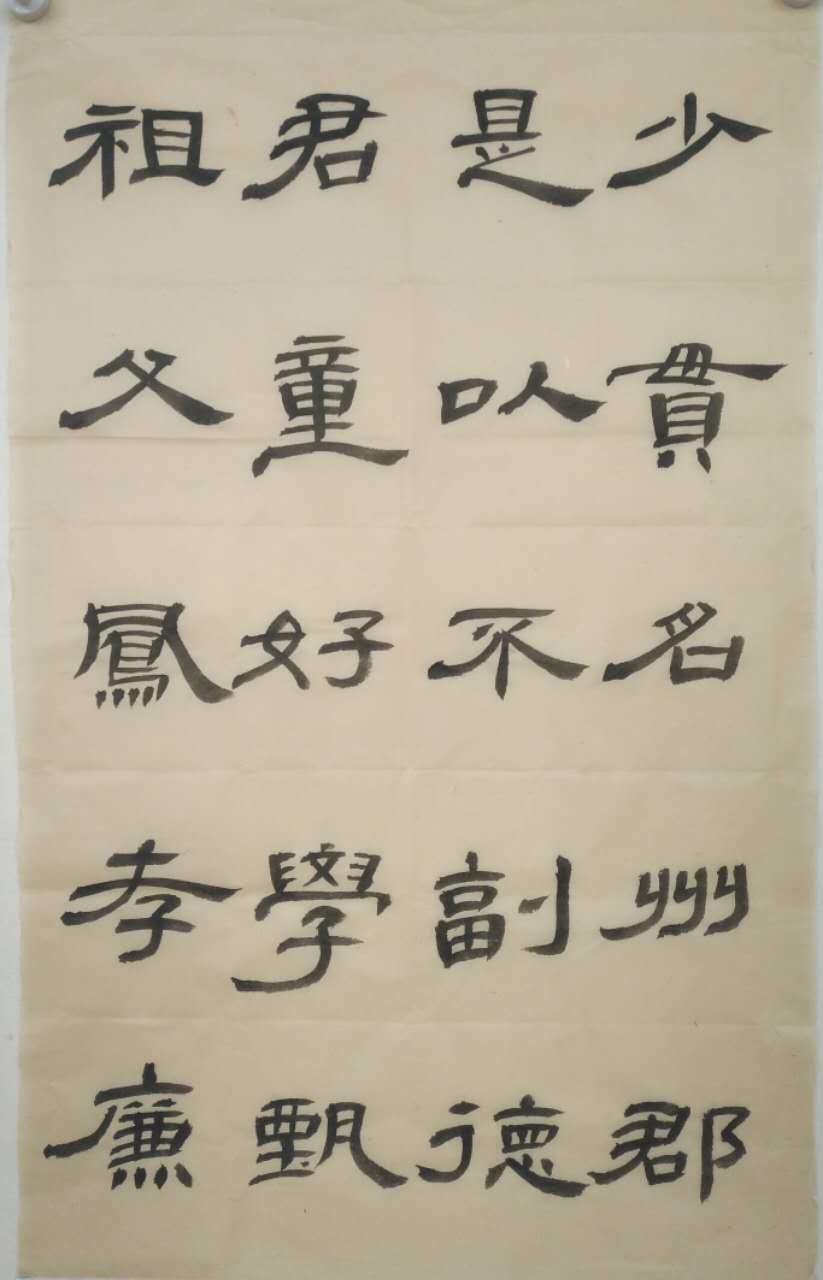 少貫名州郡
是以不副德
君童好學甄
祖父鳳孝廉